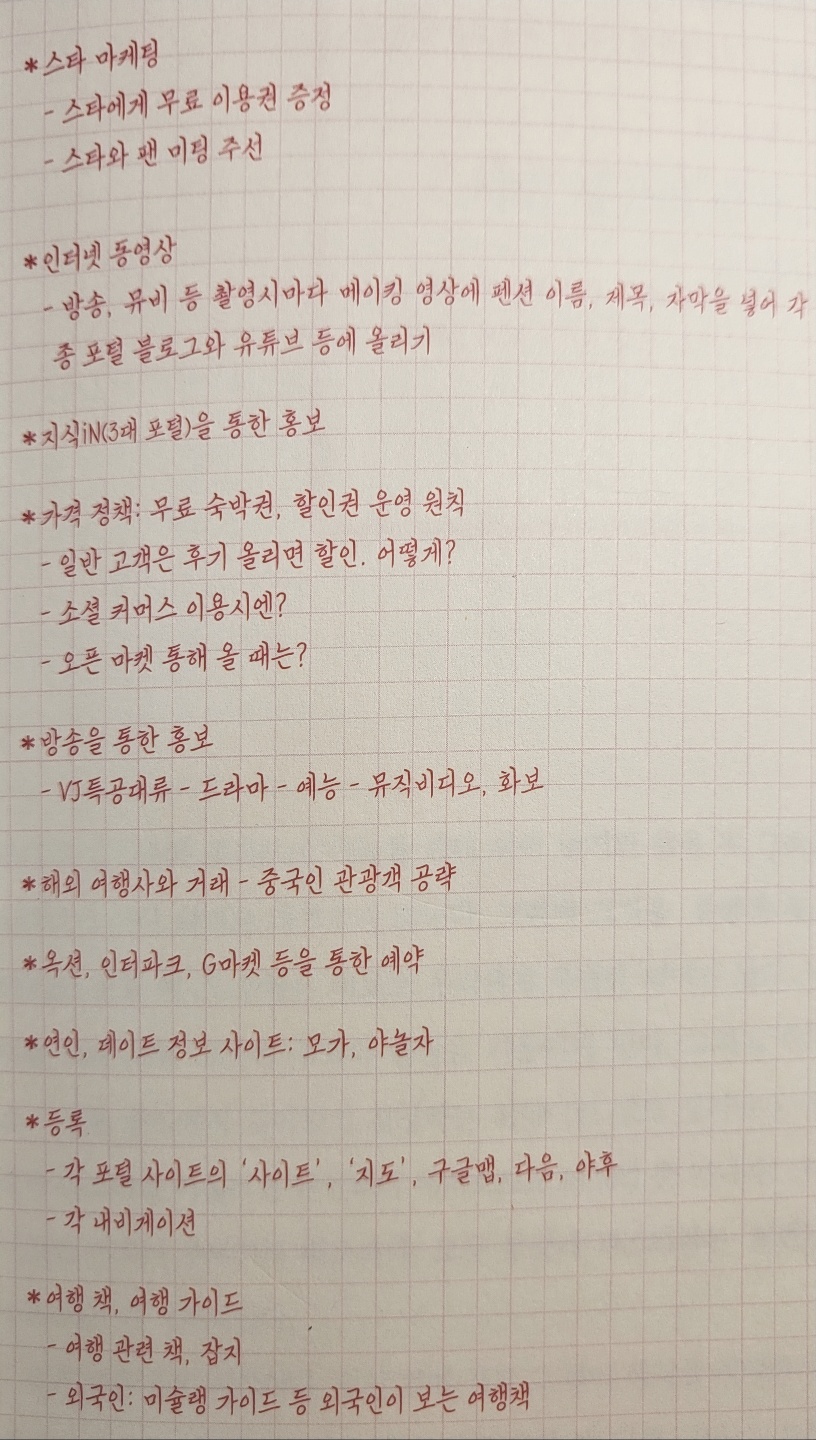 *스타 마케팅
- 스타에게 무료 이용권 증정
- 스타와 팬 미팅 주선
*인터넷 동영상
- 방송, 뮤비 등 촬영시마다 메이킹 영상에 펜션 이름, 제목, 자막을 넣어 각
종 포털 블로그와 유튜브 등에 올리기
*지식iN(3대 포털)을 통한 홍보
*가격 정책: 무료 숙박권, 할인권 운영 원칙
- 일반 고객은 후기 올리면 할인. 어떻게?
- 소셜 커머스 이용시엔?
- 오픈 마켓 통해 올 때는?
*방송을 통한 홍보
- VJ특공대류 - 드라마 - 예능 - 뮤직비디오, 화보
*해외 여행사와 거래 - 중국인 관광객 공략
*옥션, 인터파크, G마켓 등을 통한 예약
*연인, 데이트 정보 사이트: 모가, 야놀자
*등록
- 각 포털 사이트의 '사이트', '지도', 구글맵, 다음, 야후
- 각 내비게이션
*여행 책, 여행 가이드
- 여행 관련 책, 잡지
- 외국인: 미슐랭 가이드 등 외국인이 보는 여행책